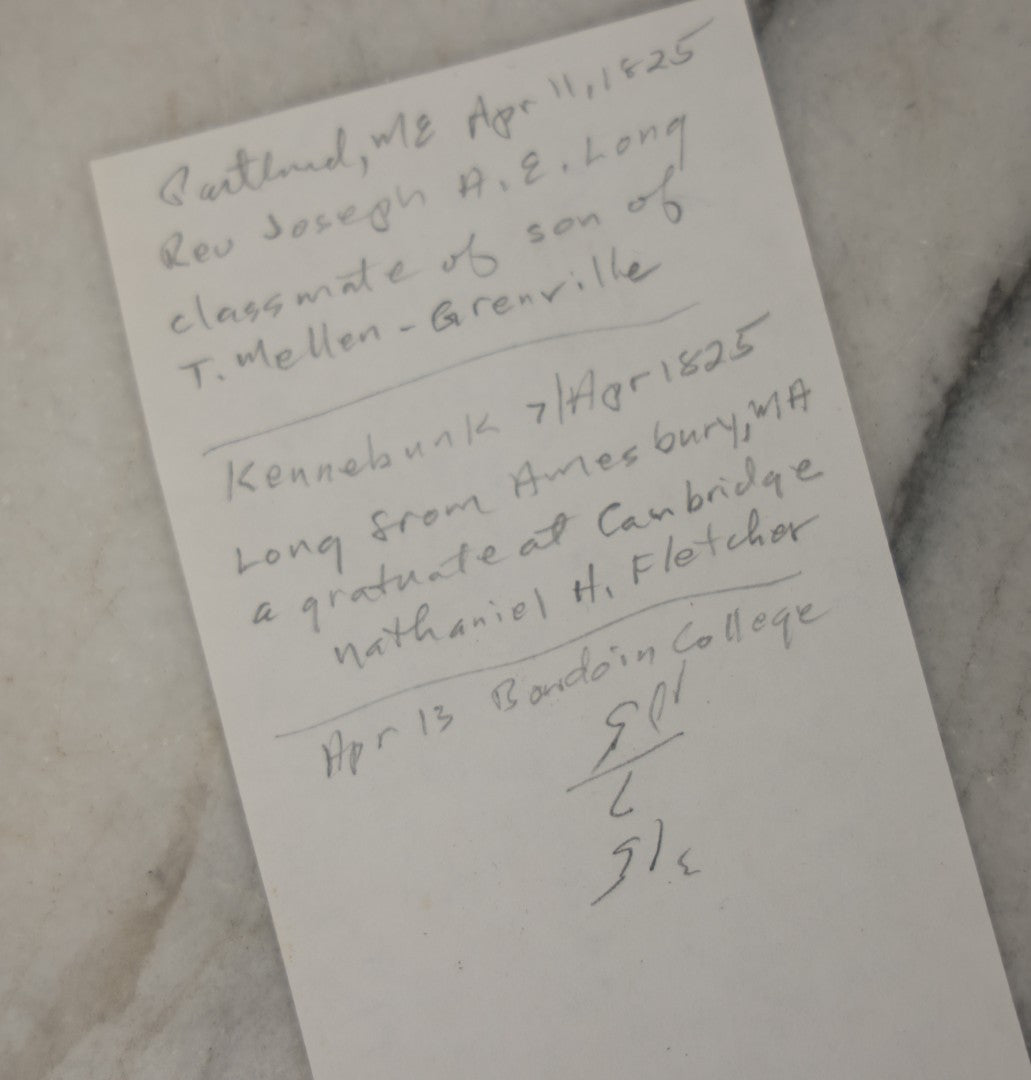 Portland, ME Apr 11, 1825
Rev Joseph A. E. Long
classmate of son of
T. Mellen - Grenville
Kennebunk 7/Apr 1825
Long from Amesbury, MA
a gratuate at Cambridge
Nathaniel H. Fletcher
Apr 13 Bowdoin College